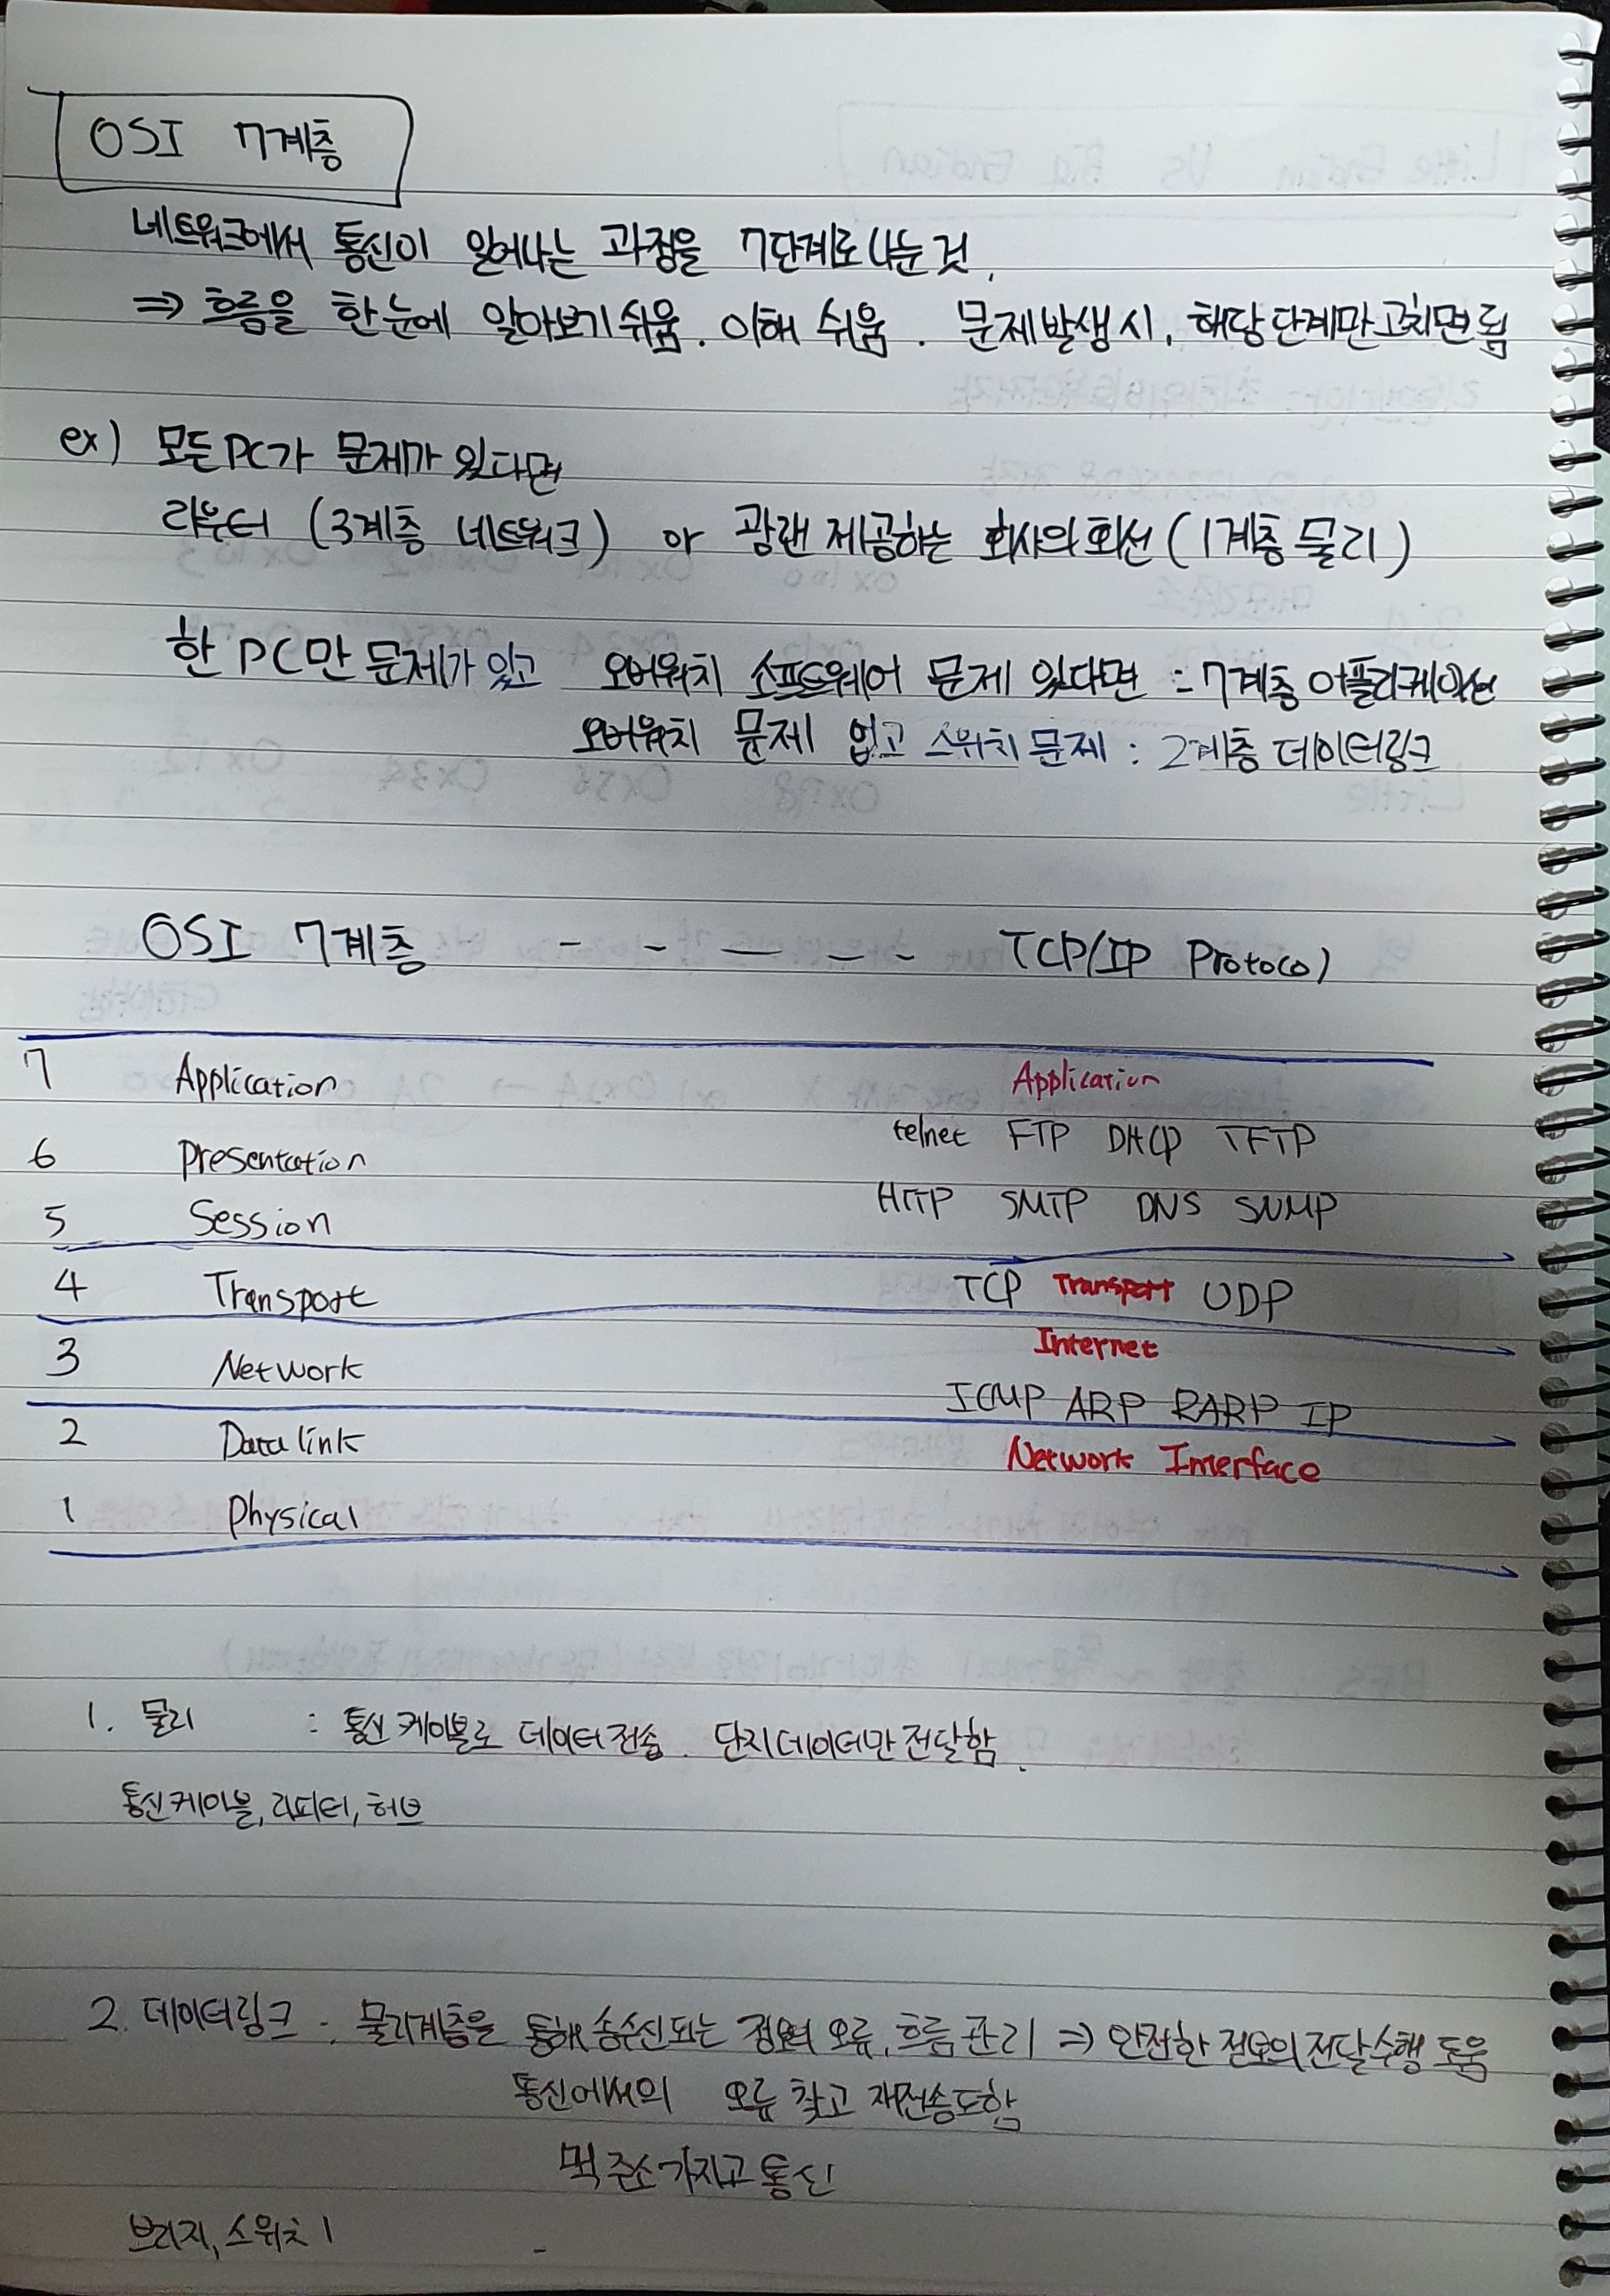 OSI 7계층
네트워크에서 통신이 일어나는 과정을 7단계로 나눈 것.
⇒ 흐름을 한눈에 알아보기 쉬움. 이해 쉬움. 문제발생시, 해당단계만 고치면 됨
ex) 모든 PC가 문제가 있다면
라우터 (3계층 네트워크) or 광랜 제공하는 회사의 회선 (1계층 물리)
한 PC만 문제가 있고 오버워치 소프트웨어 문제 있다면 : 7계층 어플리케이션
오버워치 문제 없고 스위치 문제 : 2계층 데이터링크
OSI 7계층 - - — - - TCP/IP Protocol
7 Application Application
telnet FTP DHCP TFTP
6 Presentation
HTTP SMTP DNS SNMP
5 Session
4 Transport TCP Transport UDP
Internet
3 Network
ICMP ARP RARP IP
2 Data link Network Interface
1 Physical
1. 물리 : 통신 케이블로 데이터 전송. 단지 데이터만 전달함.
통신케이블, 리피터, 허브
2. 데이터링크 : 물리계층을 통해 송수신되는 정보의 오류, 흐름 관리 ⇒ 안전한 정보의 전달수행 도움
통신에서의 오류 찾고 재전송도함
맥 주소 가지고 통신
브리지, 스위치